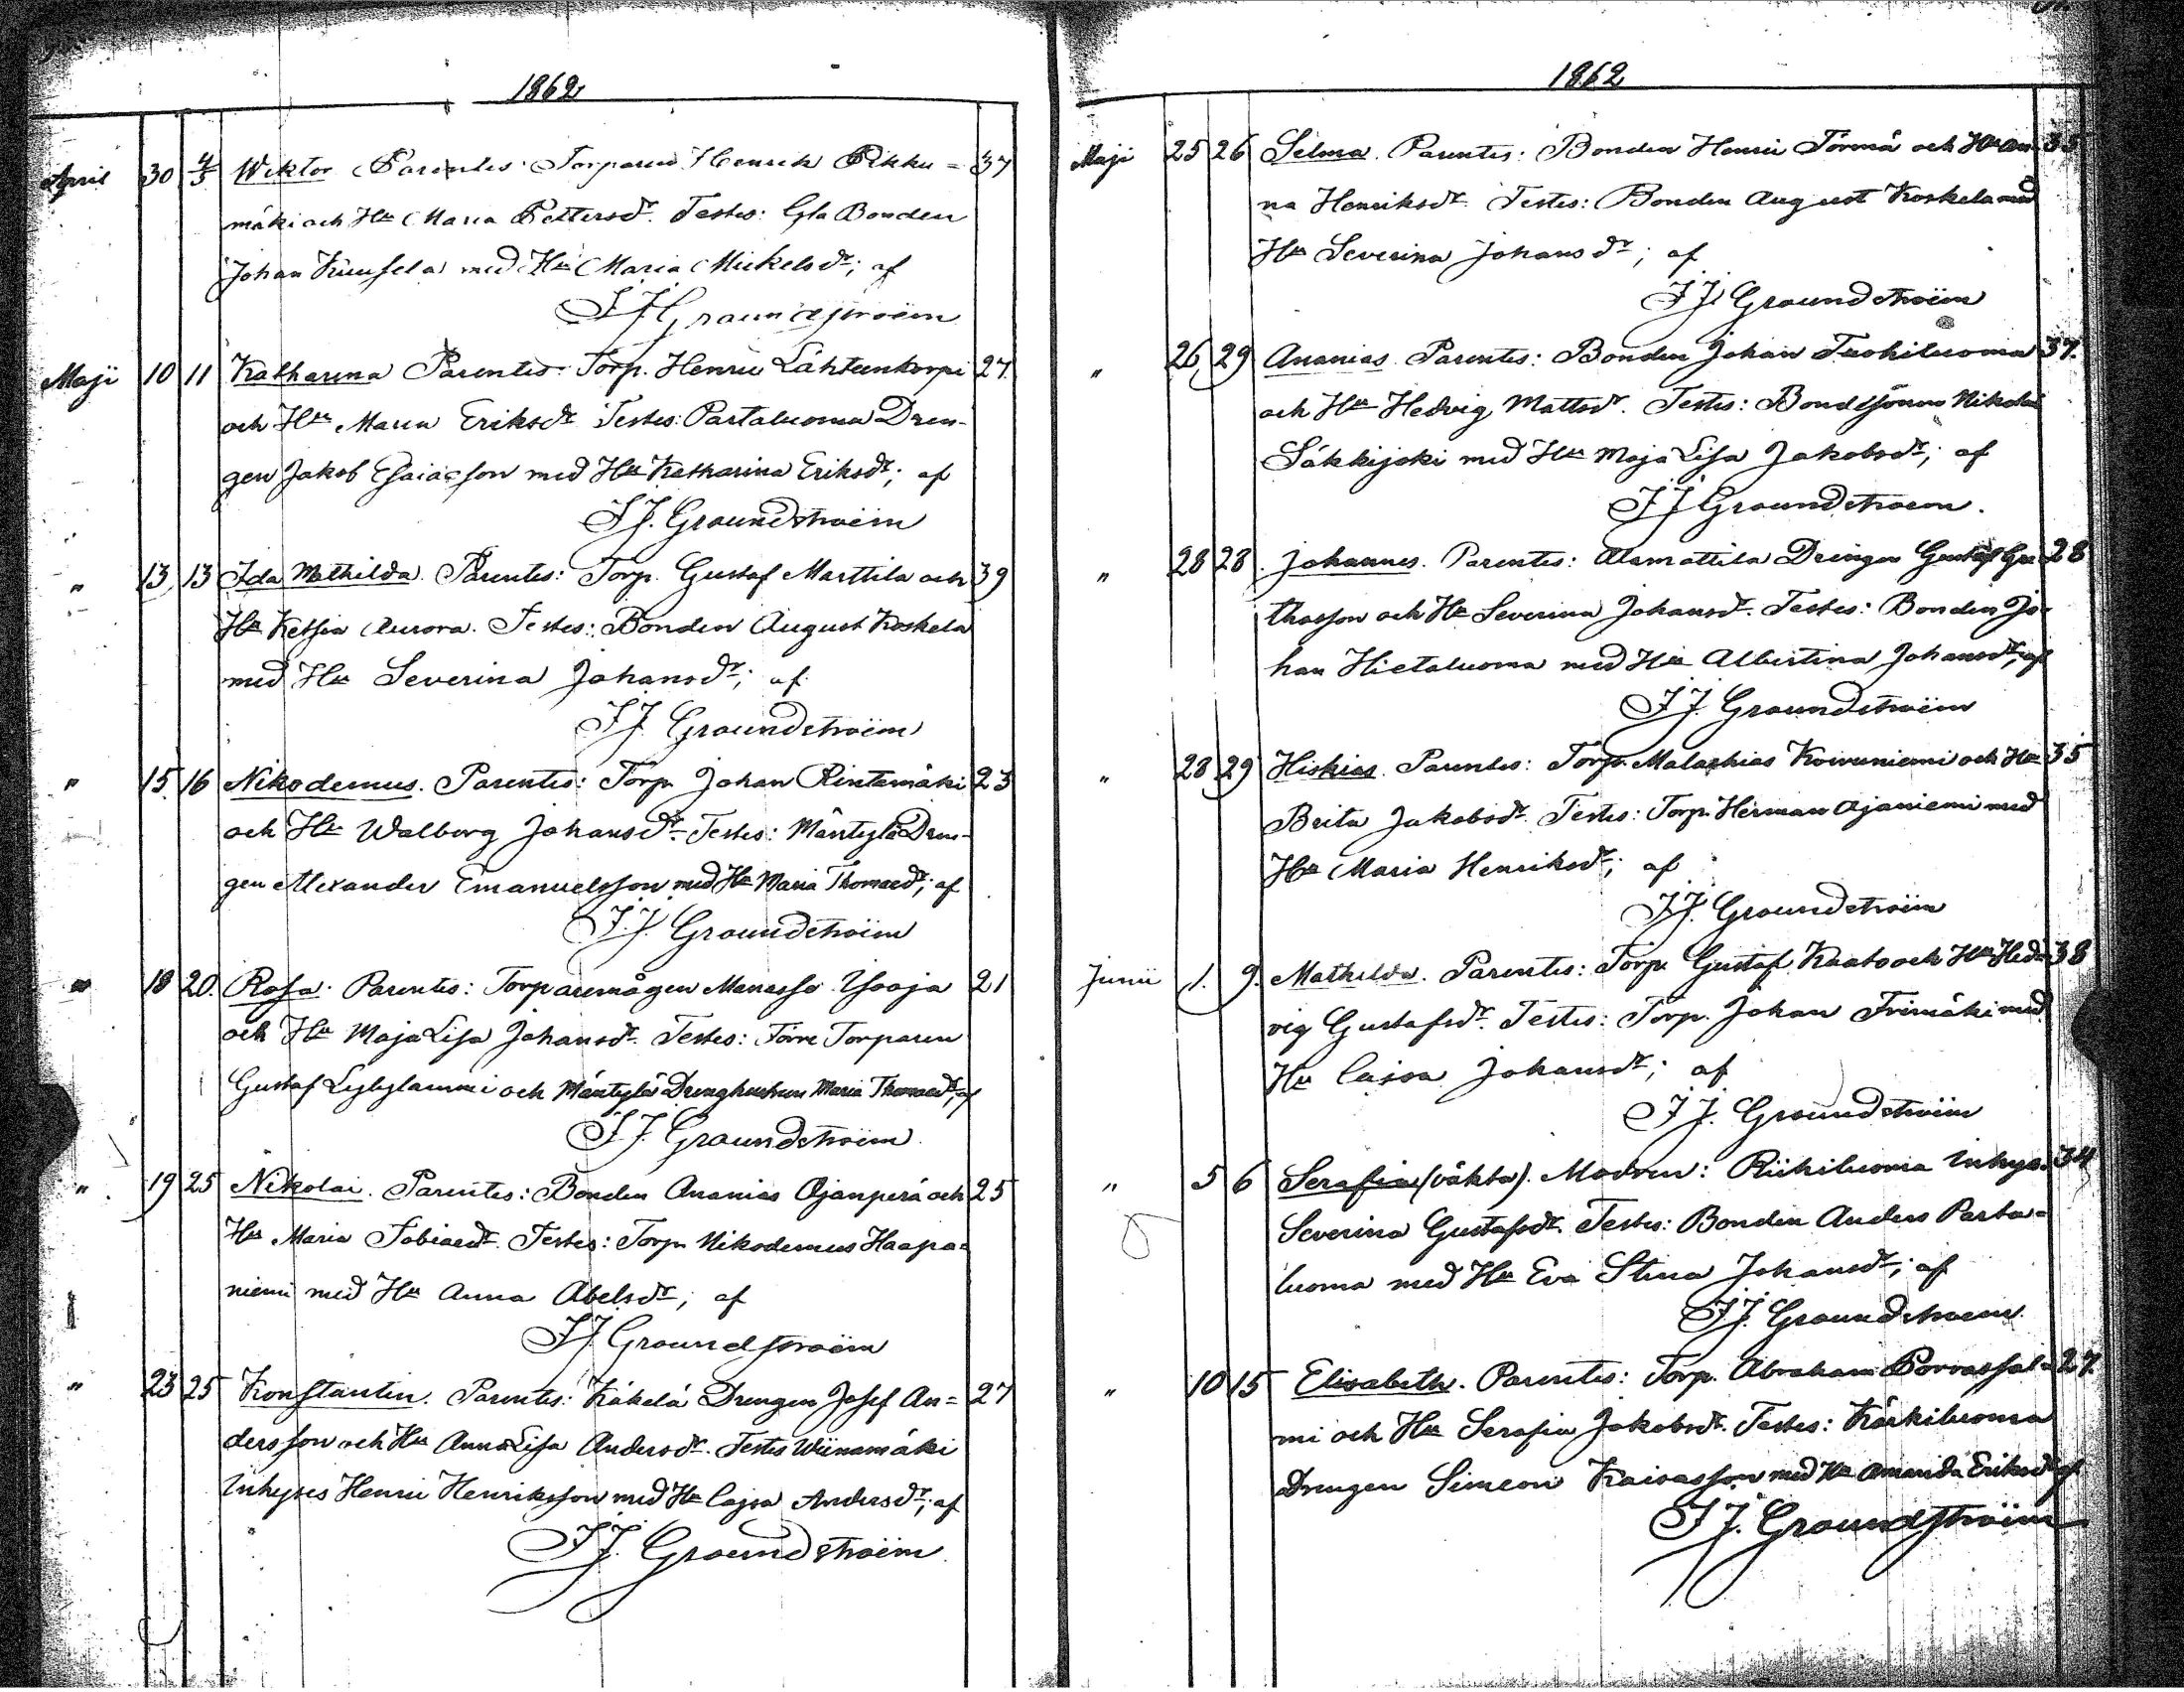 1862
April 30 4/5 Wiktor Parentes: Torparen Henrik Pikku= 37
mäki och Hu Maria Pettersdr. Testes: Gla Bonden
Johan Kuusela med Hu Maria Mickelsdr; af
F.J. Groundstroëm
Maji 10 11 Katharina Parentes: Torp. Henric Lähteenkorpi 27.
och Hu Maria Eriksdr. Testes: Partaluoma Dren-
gen Jakob Esaiasson med Hu Katharina Eriksdr; af
F.J. Groundstroëm
" 13 13 Ida Mathilda. Parentes: Torp. Gustaf Marttila och 39
Hu Ketsia Aurora. Testes: Bonden August Koskela
med Hu Severina Johansdr; af
F.J. Groundstroëm
" 15 16 Nikodemus. Parentes: Torp. Johan Rintamäki 23
och Hu Walborg Johansdr. Testes: Mäntylä Dren-
gen Alexander Emanuelsson med Hu Maria Thomaedr; af
F.J. Groundstroëm
" 18 20. Rosa. Parentes: Torparemågen Manasse Ysoaja 21
och Hu Maja Lisa Johansdr. Testes: Förre Torparen
Gustaf Lylylammi och Mäntylä Drenghustrun Maria Thomaedr; af
F.J. Groundstroëm
" 19 25 Nikolai. Parentes: Bonden Ananias Ojanperä och 25
Hu Maria Tobiaedr. Testes: Torp. Nikodemus Haapa=
niemi med Hu Anna Abelsdr; af
F.J. Groundstroëm
" 23 25 Konstantin. Parentes: Käkelä Drengen Josef An= 27
dersson och Hu Anna Lisa Andersdr. Testes Wiinamäki
Inhyses Henric Henriksson med Hu Cajsa Andersdr; af
F.J. Groundstroëm
1862
Maji 25 26 Selma. Parentes: Bonden Henric Törmä och Hu An= 35
na Henriksdr. Testes: Bonden August Koskela med
Hu Severina Johansdr; af
F.J. Groundstroëm
" 26 29 Ananias. Parentes: Bonden Johan Tuohiluoma 37.
och Hu Hedvig Mattsdr. Testes: Bondesonen Nikolai
Säkkijoki med Hu Maja Lisa Jakobsdr; af
F.J. Groundstroëm.
" 28 28. Johannes. Parentes: Alamattila Drengen Gustaf 28
och Hu Severina Johansdr. Testes: Bonden Jo-
han Hietaluoma med Hu Albertina Johansdr; af
F.J. Groundstroëm
" 28 29 Hiskias. Parentes: Torp. Malachias Koivuniemi och Hu 35
Brita Jakobsdr. Testes: Torp. Herman Ojaniemi med
Hu Maria Henriksdr; af
F.J. Groundstroëm
Junii 1. 9. Mathilda. Parentes: Torp. Gustaf Kaato och Hu Hed= 38
vig Gustafsdr. Testes: Torp. Johan Frimäki med
Hu Caisa Johansdr; af
F.J. Groundstroëm
" 5 6 Serafia (oäkta). Modren: Riihiluoma Inhyse. 34
Severina Gustafsdr. Testes: Bonden Anders Parta=
luoma med Hu Eva Stina Johansdr; af
F.J. Groundstroëm.
" 10 15 Elisabeth. Parentes: Torp. Abraham Porrassal= 27.
mi och Hu Serafia Jakobsdr. Testes: Kärkiluoma
Drengen Simeon med Hu Amanda Eriksdr af
F.J. Groundstroëm